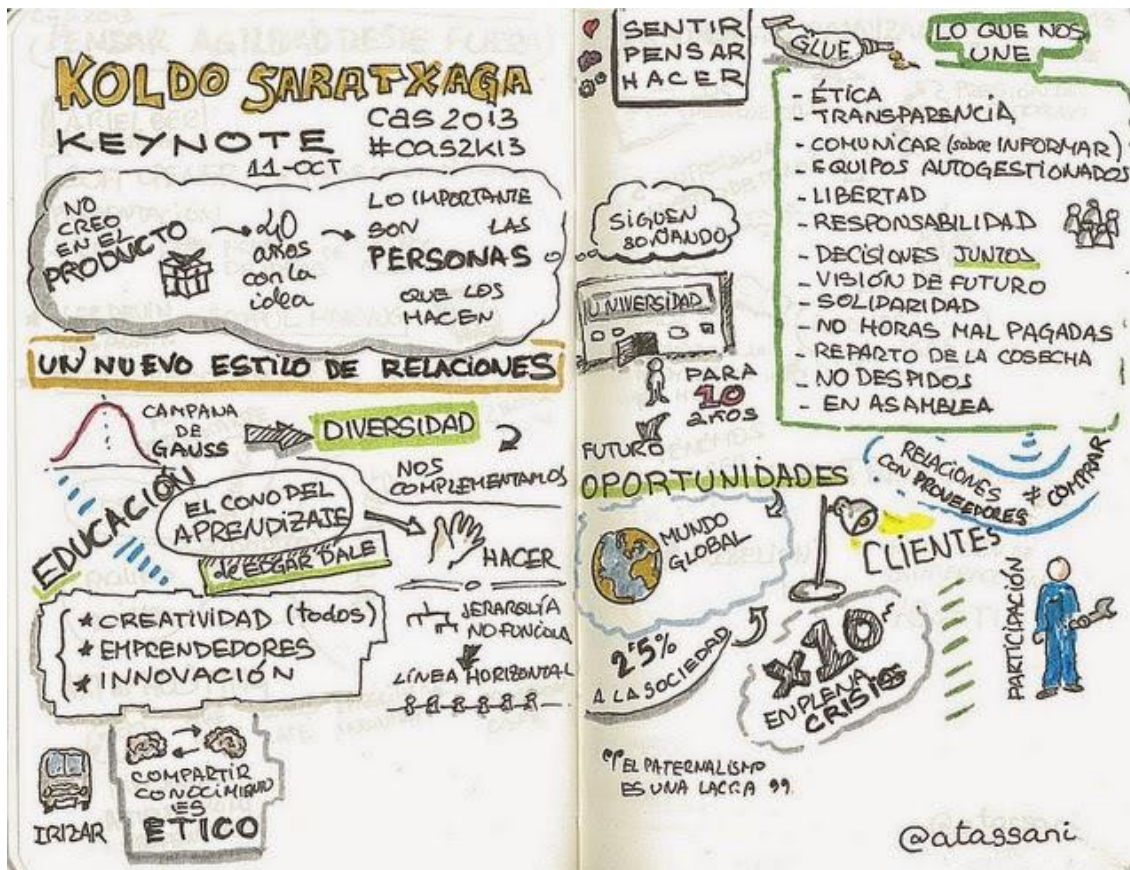 KOLDO SARATXAGA
KEYNOTE
CAS 2013
#CAS2K13
11-OCT
NO
CREO
EN EL
PRODUCTO
20
años
con la
idea
LO IMPORTANTE
SON LAS
PERSONAS
QUE LOS
HACEN
UN NUEVO ESTILO DE RELACIONES
CAMPANA
DE
GAUSS
DIVERSIDAD
NOS
COMPLEMENTAMOS
EDUCACIÓN
EL CONO DEL
APRENDIZAJE
de EDGAR DALE
HACER
* CREATIVIDAD (todos)
* EMPRENDEDORES
* INNOVACIÓN
JERARQUÍA
NO FUNCIONA
LÍNEA HORIZONTAL
IRIZAR
COMPARTIR
CONOCIMIENTO
ES
ETICO
SENTIR
PENSAR
HACER
GLUE
LO QUE NOS
UNE
- ÉTICA
- TRANSPARENCIA
- COMUNICAR (sobre INFORMAR)
- EQUIPOS AUTOGESTIONADOS
- LIBERTAD
- RESPONSABILIDAD
- DECISIONES JUNTOS
- VISIÓN DE FUTURO
- SOLIDARIDAD
- NO HORAS MAL PAGADAS
- REPARTO DE LA COSECHA
- NO DESPIDOS
- EN ASAMBLEA
SIGUEN
SOÑANDO
UNIVERSIDAD
PARA
10
años
FUTURO
OPORTUNIDADES
RELACIONES
CON PROVEEDORES
≠ COMPRAR
MUNDO
GLOBAL
CLIENTES
PARTICIPACIÓN
2'5%
A LA SOCIEDAD
x10
EN PLENA
CRISIS
"EL PATERNALISMO
ES UNA LACRA"
@atassani